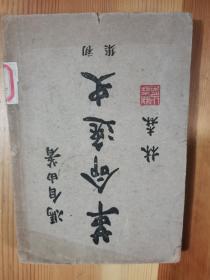 馮自由著
革命逸史
初集
林森